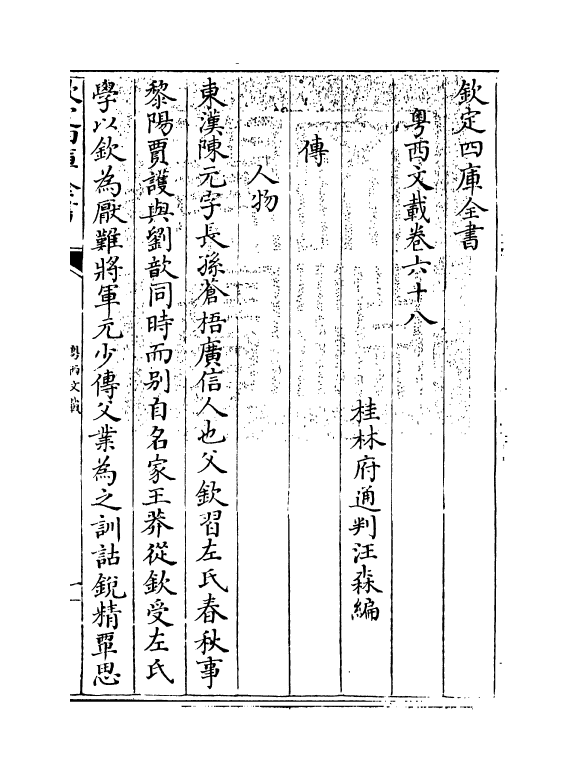 欽定四庫全書
粵西文載卷六十八
桂林府通判汪森編
傳
人物
東漢陳元字長孫蒼梧廣信人也父欽習左氏春秋事
黎陽賈護與劉歆同時而别自名家王莽從欽受左氏
學以欽為厭難將軍元少傳父業為之訓詁銳精覃思
粵西文載